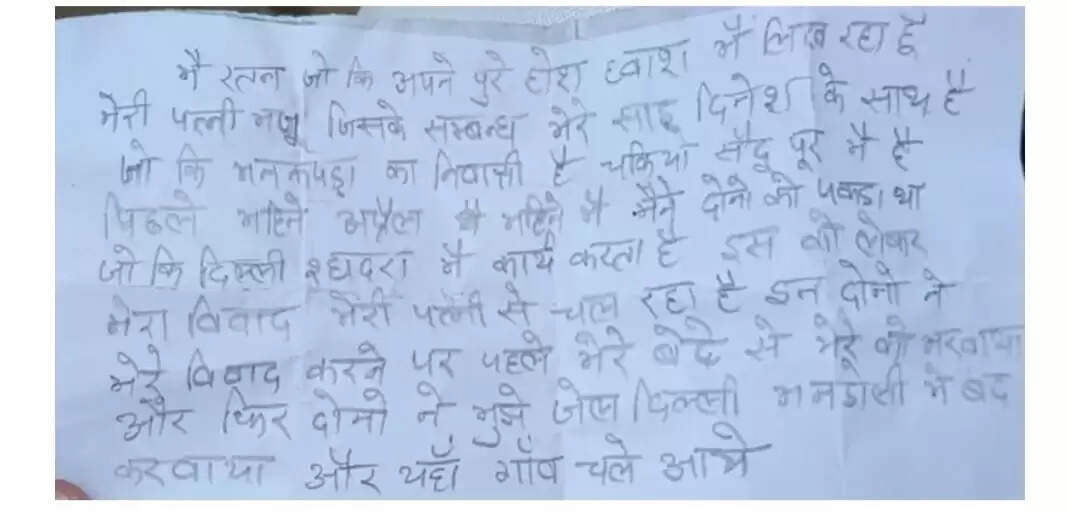 मै रतन जो कि अपने पुरे होश ध्वाश मैं लिख रहा हूँ
मेरी पत्नी मंजू जिसके सम्बन्ध मेरे साढू दिनेश के साथ है
जो कि का निवासी है चकिया सैदू पूर मै है
पिछले महिने अप्रैल महिने मै मैने दोनो को पकडा था
जो कि दिल्ली श्हादरा मै कार्य करता है इस को लेकर
मेरा विवाद मेरी पत्नी से चल रहा है इन दोनो ने
मेरे विवाद करने पर पहले मेरे बेटे से मेरे को मरवाया
और फिर दोनो ने मुझे जेल दिल्ली मनडोली मे बंद
करवाया और यहाँ गाँव चले आये